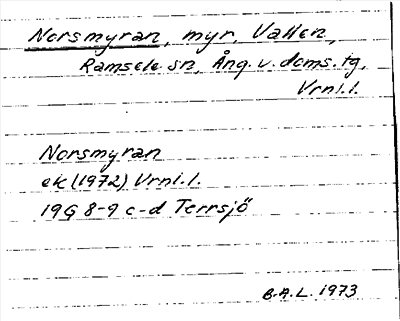 Norsmyran, myr, Vallen,
Ramsele sn, Ång. v. doms. tg,
Vrnl.l.
Norsmyran
ek (1972) Vrnl.l.
19G 8-9 c-d Terrsjö
B.A.L. 1973